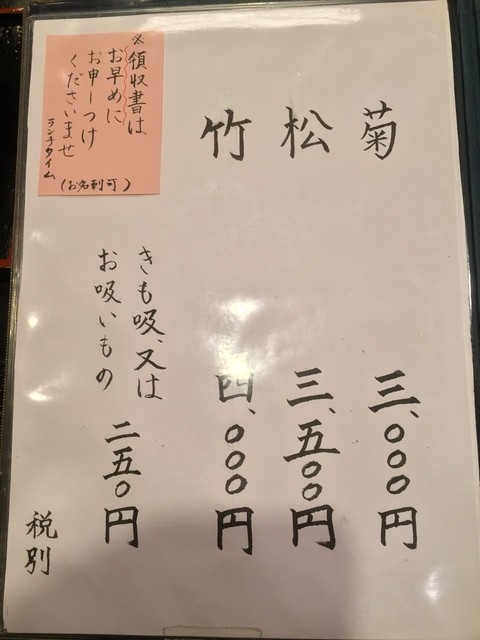 菊 三、〇〇〇円
松 三、五〇〇円
竹 四、〇〇〇円
きも吸、又は
お吸いもの 二五〇円
税別
※領収書は
お早めに
お申しつけ
くださいませ
ランチタイム
(お名刺可)